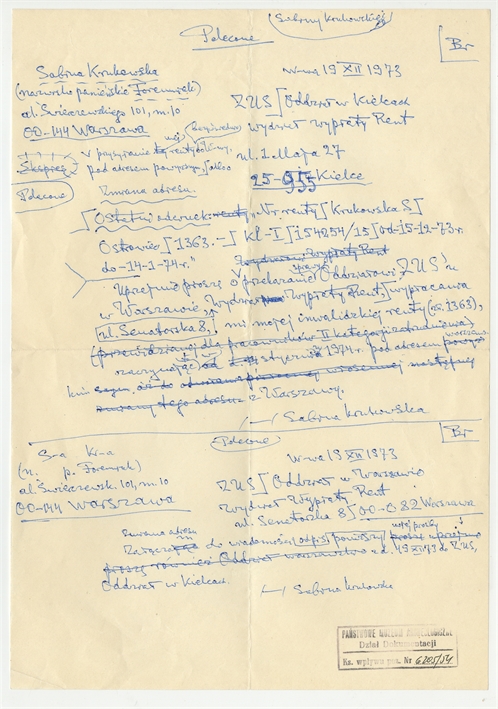 (Sabiny Krukowskiej)
Polecone
Br
Sabina Krukowska
W-wa 19 XII 1973
(nazwisko panieńskie Foremniak)
ZUS [Oddział w Kielcach
al. Świerczewskiego 101, m. 10
Wydział Wypłaty Rent
00-144 Warszawa
ul. 1 Maja 27
Ekspres
pod adresem powyższym,
25-955 Kielce
Polecone
Zmiana adresu.
[Ostatni odcinek renty „Nr. renty [Krukowska S]
Ostrowiec [1363.-] Kl-I [154254/15] od-15-12-73 r.
do-14-1-74 r."
Wydziału Wypłaty Rent
Uprzejmie proszę o przekazanie Oddziałowi ZUS'u
w Warszawie, Wydział Wypłaty Rent, [wypłacania
ul. Senatorska 8, mi mojej inwalidzkiej renty (zł. 1363),
(przewidzianej dla pracowników II kategorii zatrudnienia)
od stycznia 1974 r. pod adresem
zmiany tego adresu z Warszawy.
Sabina Krukowska
Polecone
Br
S-a Kr-a
W-wa 19 XII 1973
(n. p. Foremniak)
ZUS [Oddział w Warszawie
al. Świerczewsk. 101, m 10
Wydział Wypłaty Rent
00-144 Warszawa
ul. Senatorska 8] 00-082 Warszawa
zmiana adresu
mojej prośby
Załączam do wiadomości odpis
z d. 19 XII 73 do ZUS,
Oddział w Kielcach.
Sabina Krukowska
PAŃSTWOWE MUZEUM
Dział Dokumentacji
Ks. wpływu poz. Nr 6205/54